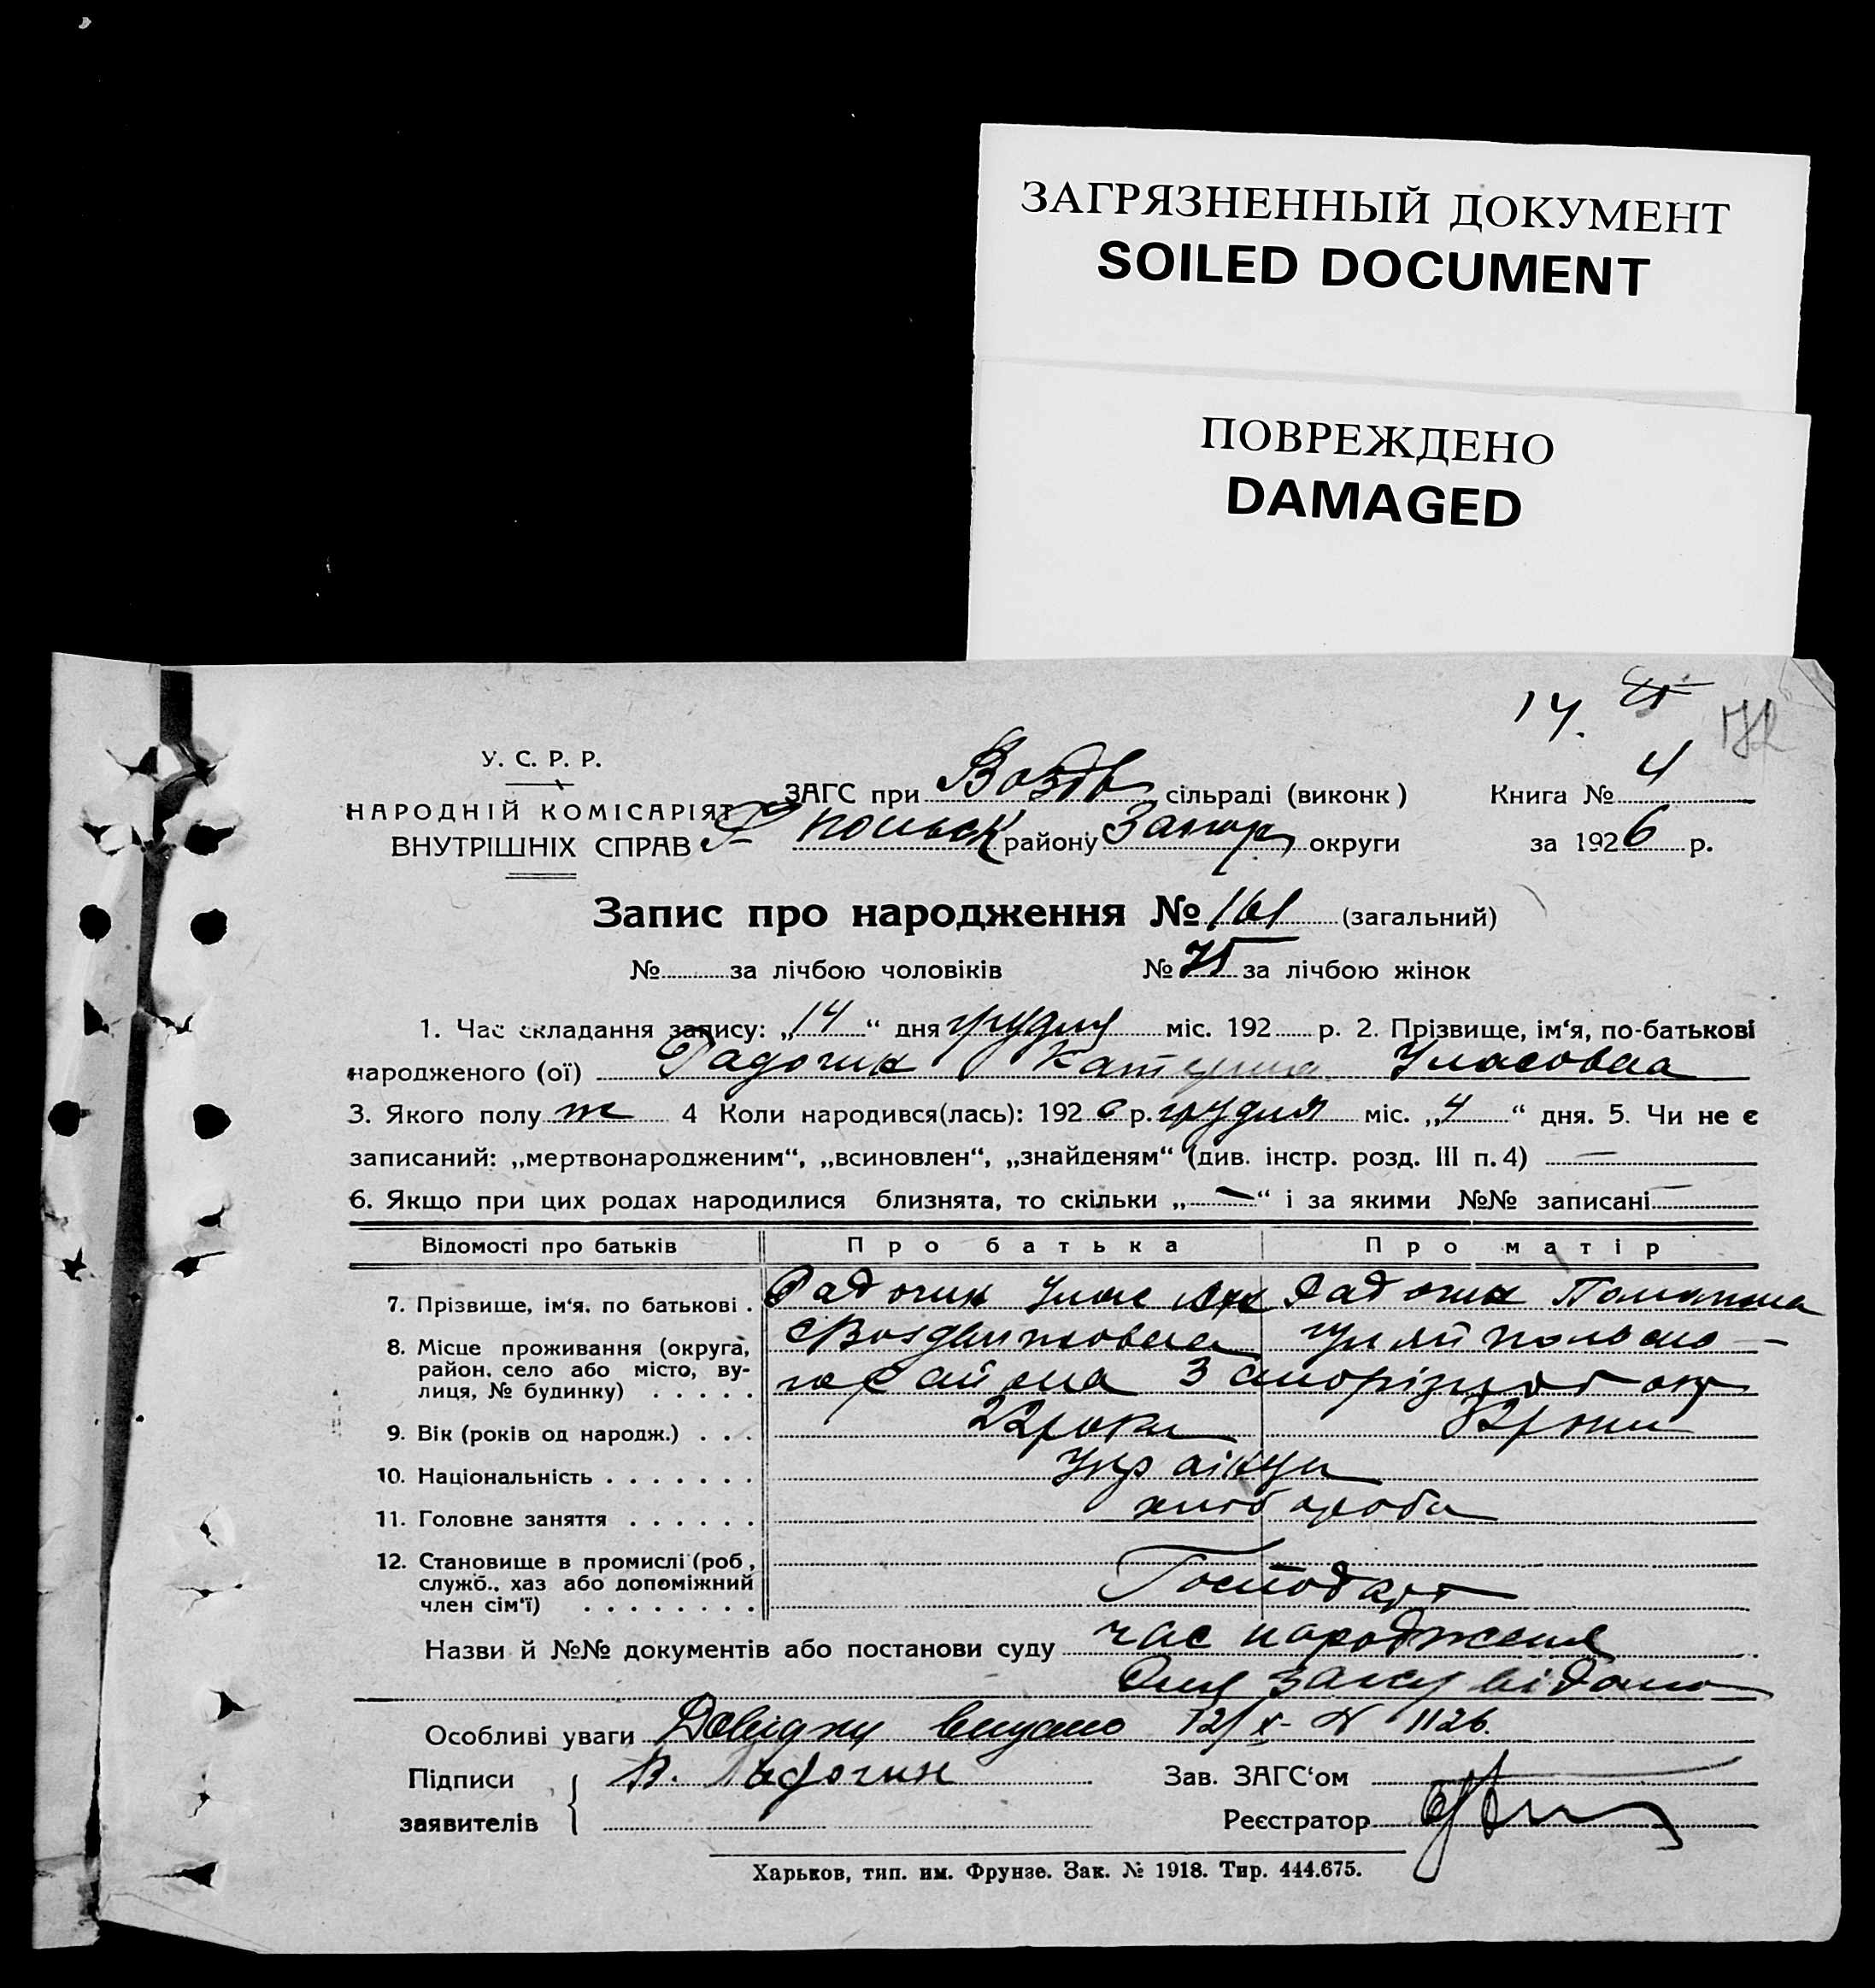 ЗАГРЯЗНЕННЫЙ ДОКУМЕНТ
SOILED DOCUMENT
ПОВРЕЖДЕНО
DAMAGED
14.
У. С. Р. Р.
НАРОДНІЙ КОМІСАРІЯТ
ВНУТРІШНІХ СПРАВ
ЗАГС при Воздв сільраді (виконк)
Книга № 4
польськ району Запор округи
за 1926 р.
Запис про народження № 161 (загальний)
№ за лічбою чоловіків № 75 за лічбою жінок
1. Час складання запису: „14“ дня грудня міс. 192 р. 2. Прізвище, ім‘я, по-батькові
народженого (ої) Катерина Уласовна
3. Якого полу ж 4 Коли народився(лась): 1926 р. грудня міс. „4“ дня. 5. Чи не є
записаний: „мертвонародженим“, „всиновлен“, „знайденям“ (див. інстр. розд. III п. 4) —
6. Якщо при цих родах народилися близнята, то скільки „—“ і за якими №№ записані —
Відомості про батьків Про батька Про матір
7. Прізвище, ім‘я, по батькові . Улас
8. Місце проживання (округа, Воздвиживка Гуляйпольсько-
район, село або місто, ву-
лиця, № будинку) . . . . . го району Запорізької окр
9. Вік (років од народж.) . . . 22 роки
10. Національність . . . . . . . Українці
11. Головне заняття . . . . . . хлібороби
12. Становище в промислі (роб,
служб., хаз або допоміжний
член сім‘ї) . . . . . . . . Господарі
Назви й №№ документів або постанови суду час народження
для загсу відомо
Особливі уваги Довідку видано 12/X- № 1126.
Підписи
заявителів
Зав. ЗАГС‘ом
Реєстратор
Харьков, тип. им. Фрунзе. Зак. № 1918. Тир. 444.675.